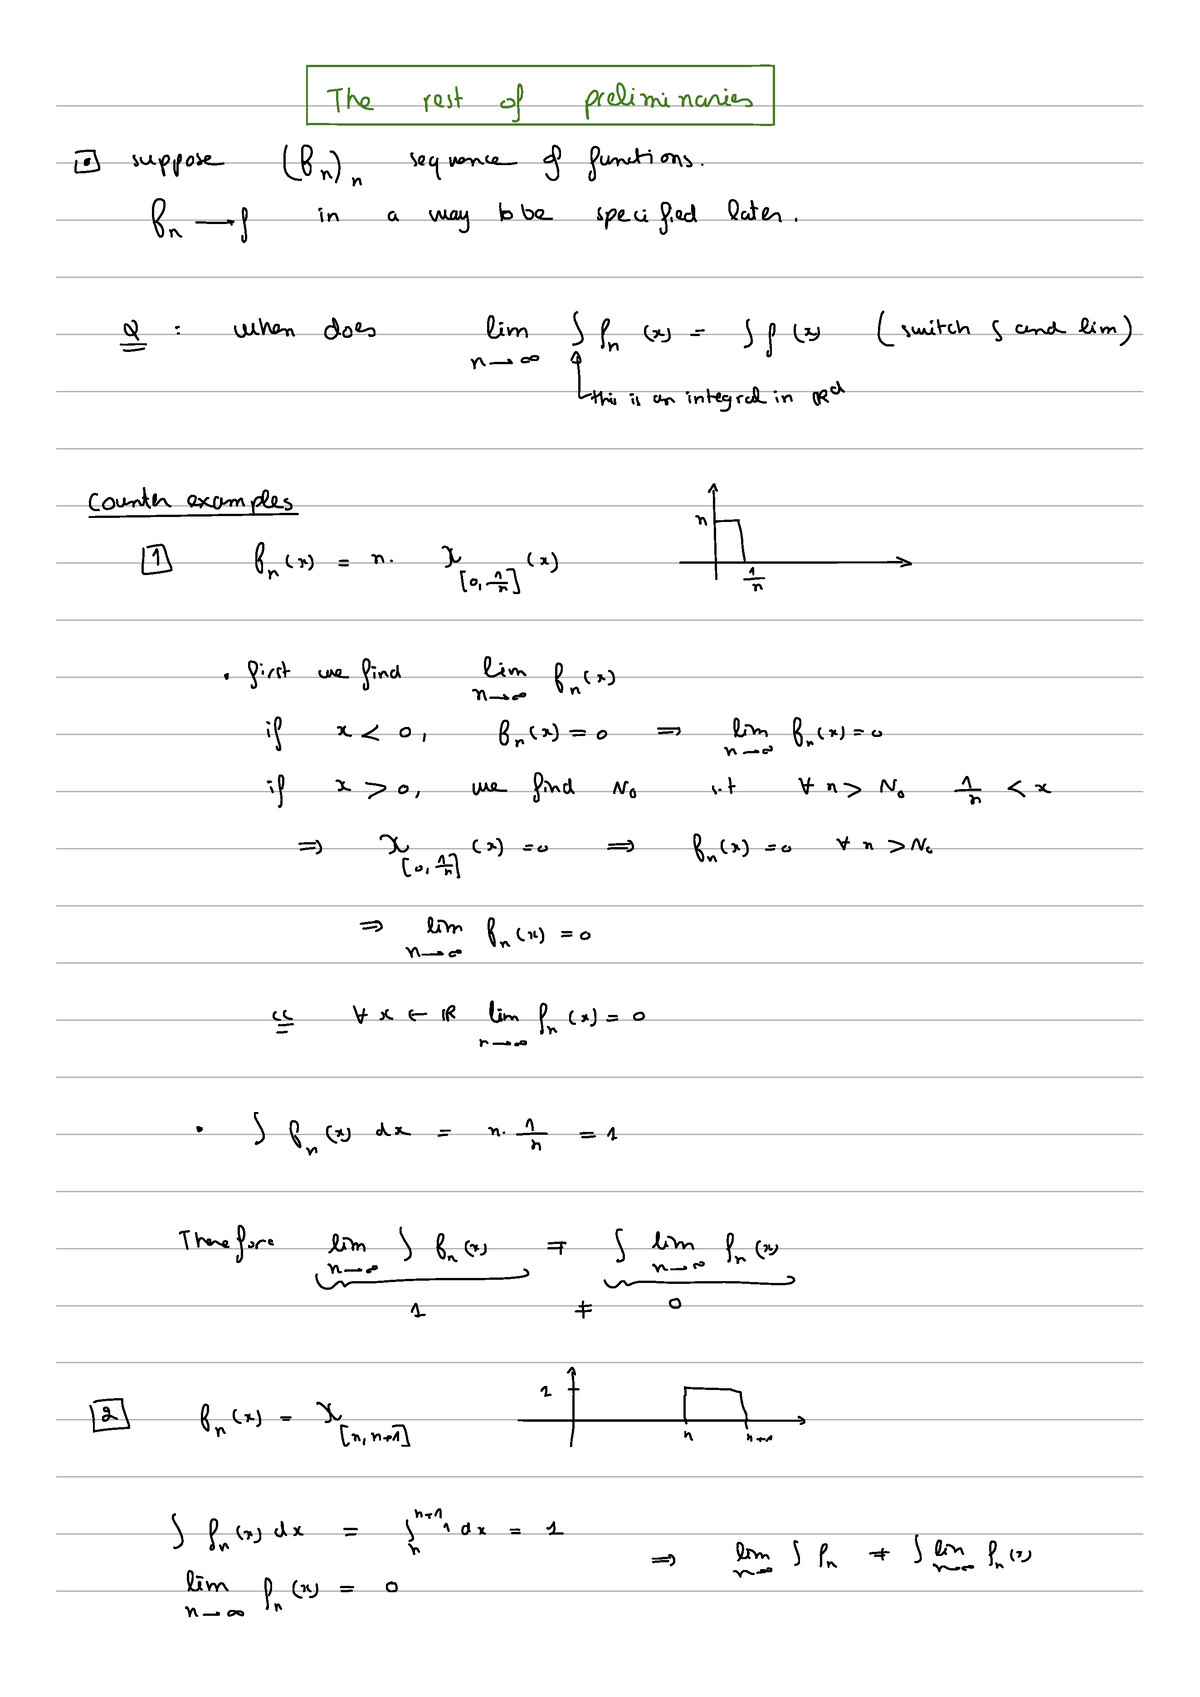 The rest of preliminaries
• suppose (fn)n sequence of functions.
fn → f in a way to be specified later.
Q : when does lim n→∞ ∫ fn (x) = ∫ f (x) (switch ∫ and lim)
this is an integral in ℝᵈ
Counter examples
n
1 fn(x) = n. χ [0, 1/n] (x)
1/n
• first we find lim n→∞ fn(x)
if x < 0, fn(x) = 0 ⇒ lim n→∞ fn(x) = 0
if x > 0, we find N₀ s.t ∀ n > N₀ 1/n < x
⇒ χ [0, 1/n] (x) = 0 ⇒ fn(x) = 0 ∀ n > N₀
⇒ lim n→∞ fn(x) = 0
∀ x ∈ ℝ lim n→∞ fn(x) = 0
• ∫ fn(x) dx = n. 1/n = 1
Therefore lim n→∞ ∫ fn(x) ≠ ∫ lim n→∞ fn(x)
1 ≠ 0
1
2 fn(x) = χ [n, n+1]
n n+1
∫ fn(x) dx = ∫ n n+1 1 dx = 1
⇒ lim n→∞ ∫ fn ≠ ∫ lim n→∞ fn(x)
lim n→∞ fn(x) = 0